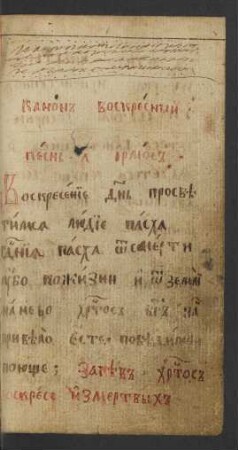 Канонъ воскрⷭ҇ный :
Пѣснь а҃ ірмосъ
Воскресенїе дн҃ь просвѣ
тимсѧ людїе пасха
гдⷭ҇нѧ пасха ѿ смерти
ꙋбо кожизни и ѿ земли
на небо хрⷭ҇тосъ бг҃ъ на
привѣлъ естъ побѣдную
поюще ; Запѣвъ хрⷭ҇тосъ
воскресе изъмертвыхъ